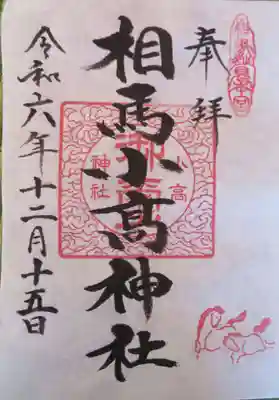 奉拝
相馬小高神社
小高
神社
令和六年十二月十五日